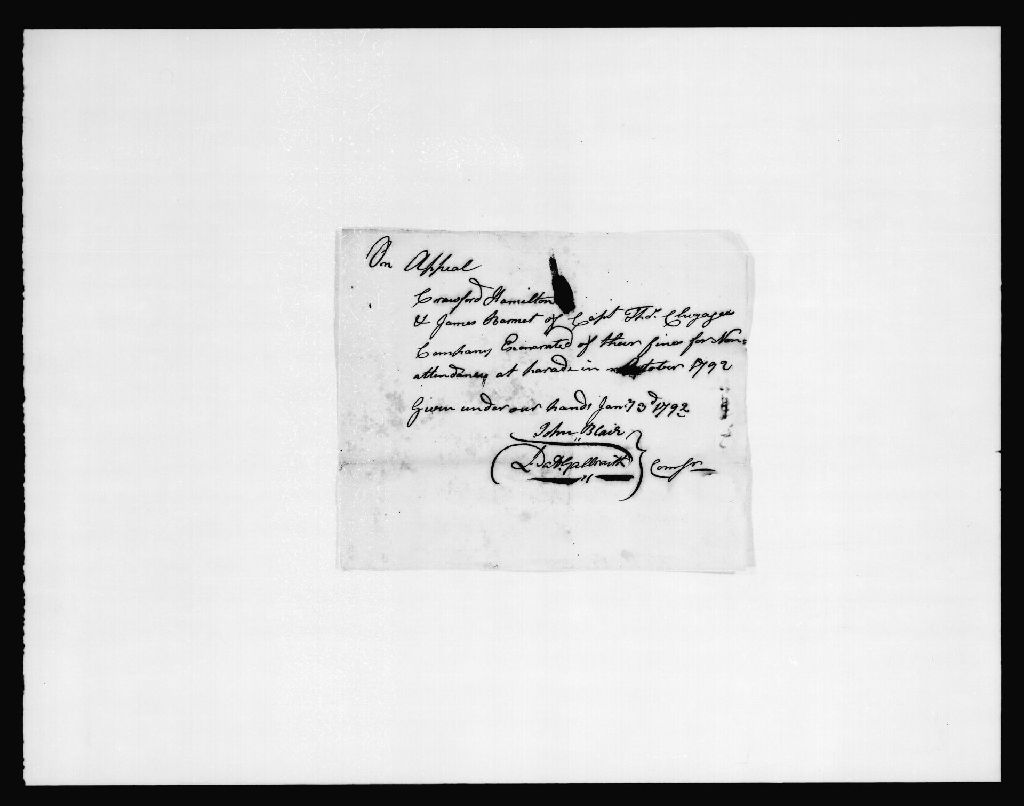 On Appeal
Crawford Hamilton
& James Barnet of Capt Thos.
Company Exonerated of their fines for Non=
attendance at parade in October 1792
Given under our hands Jany 3d 1792
John Blair
Galbraith Comsr